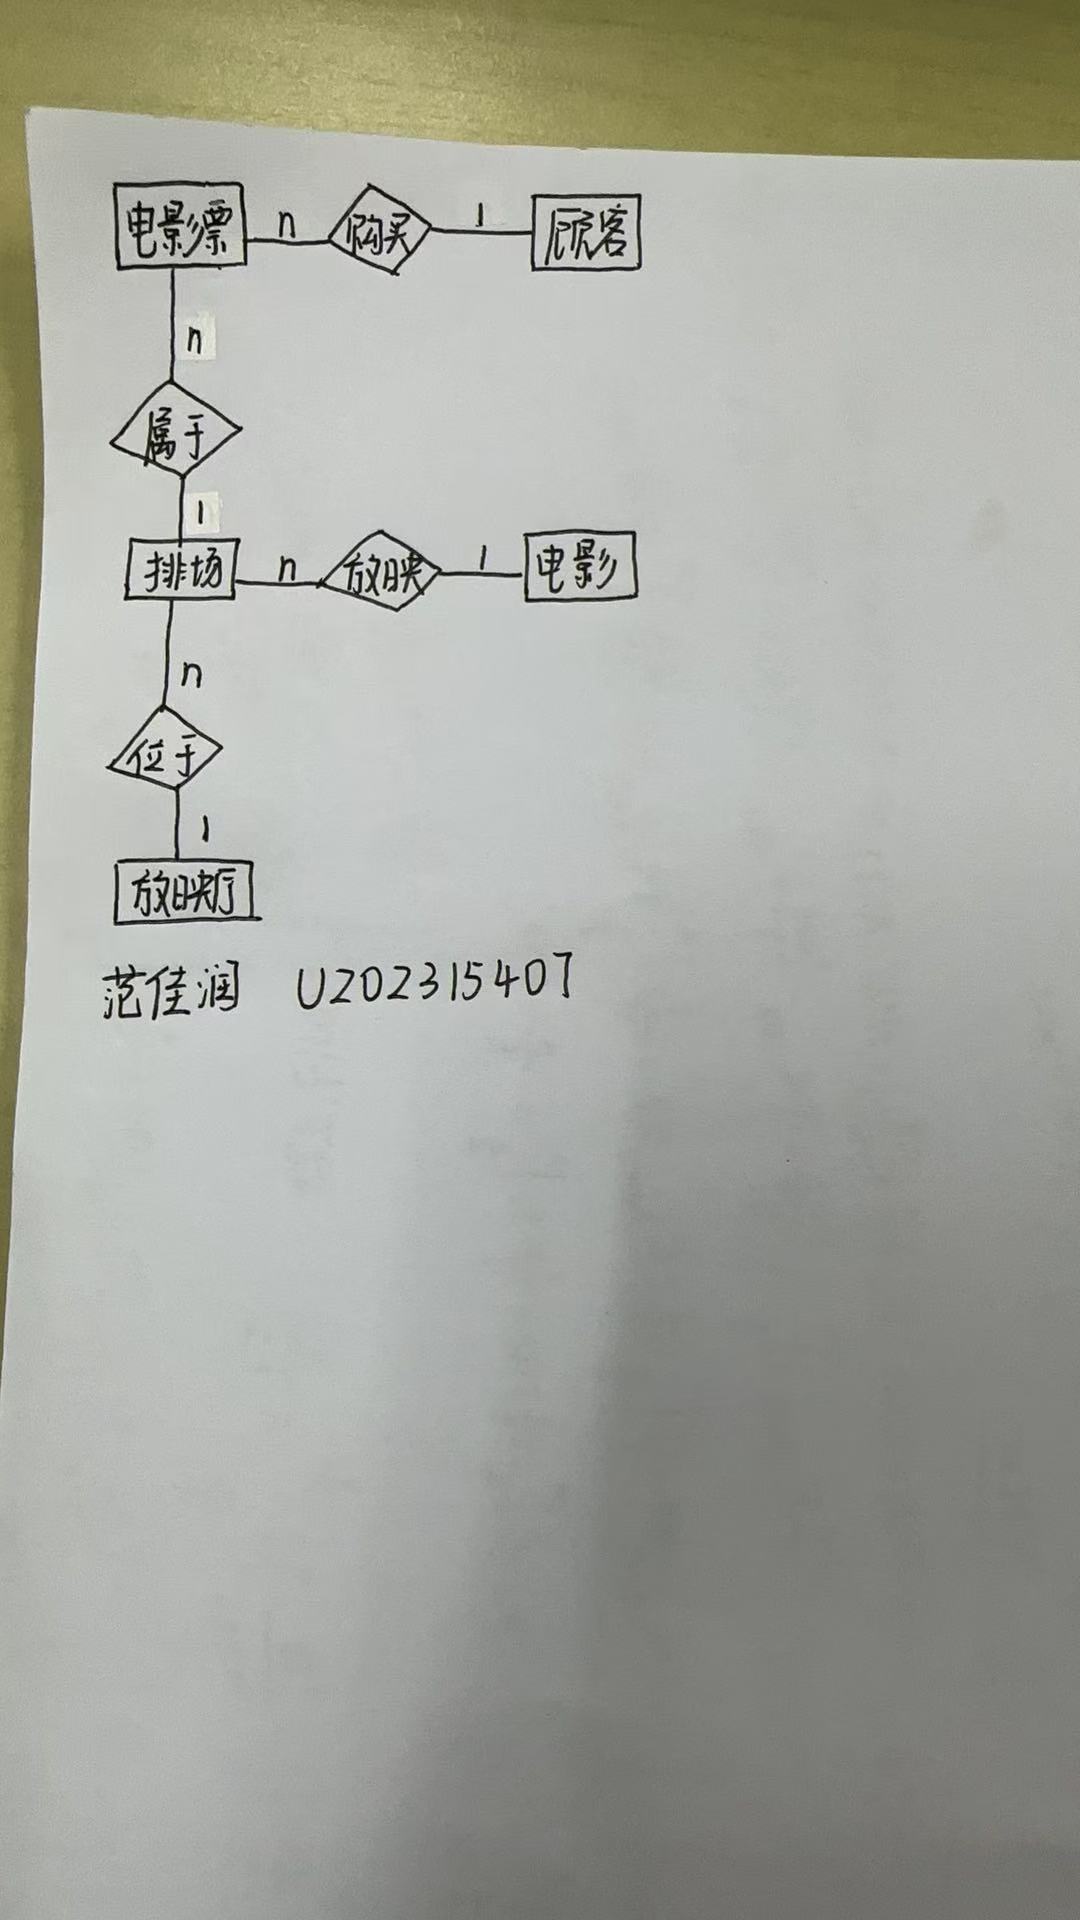 电影票 n 购买 1 顾客
n
属于
1
排场 n 放映 1 电影
n
位于
1
放映厅
范佳润 U202315407